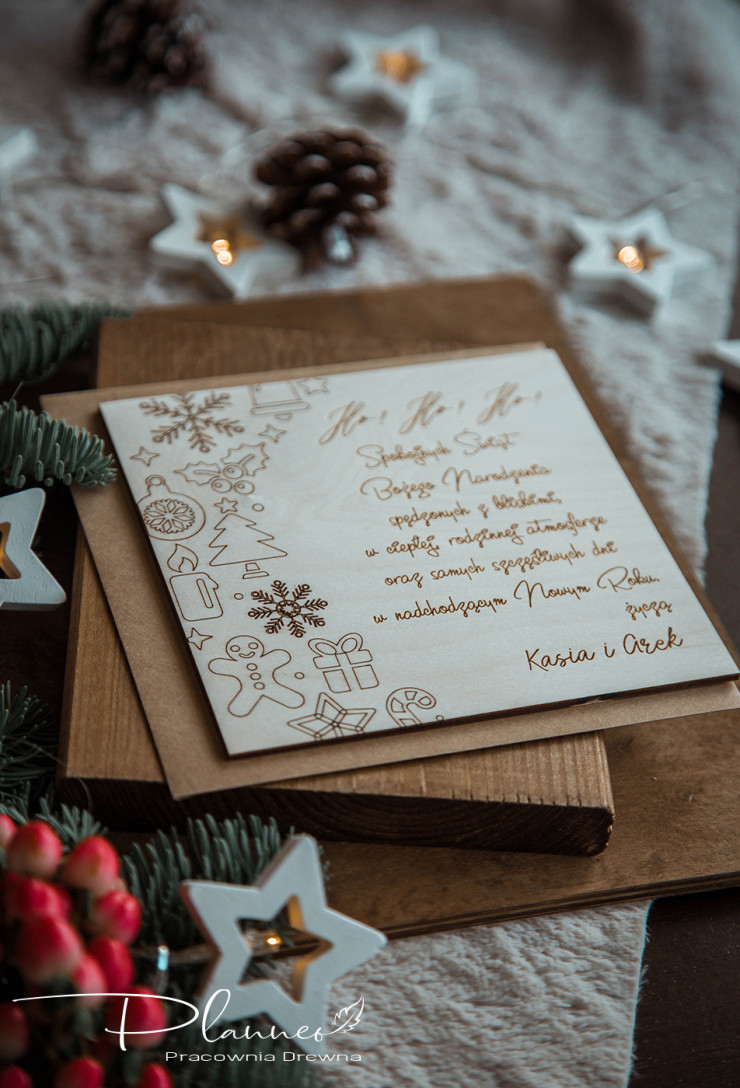 Ho! Ho! Ho!
Spokojnych Świąt
Bożego Narodzenia
spędzonych z bliskimi,
w ciepłej, rodzinnej atmosferze
oraz samych szczęśliwych dni
w nadchodzącym Nowym Roku,
życzą
Kasia i Arek
Planner
Pracownia Drewna